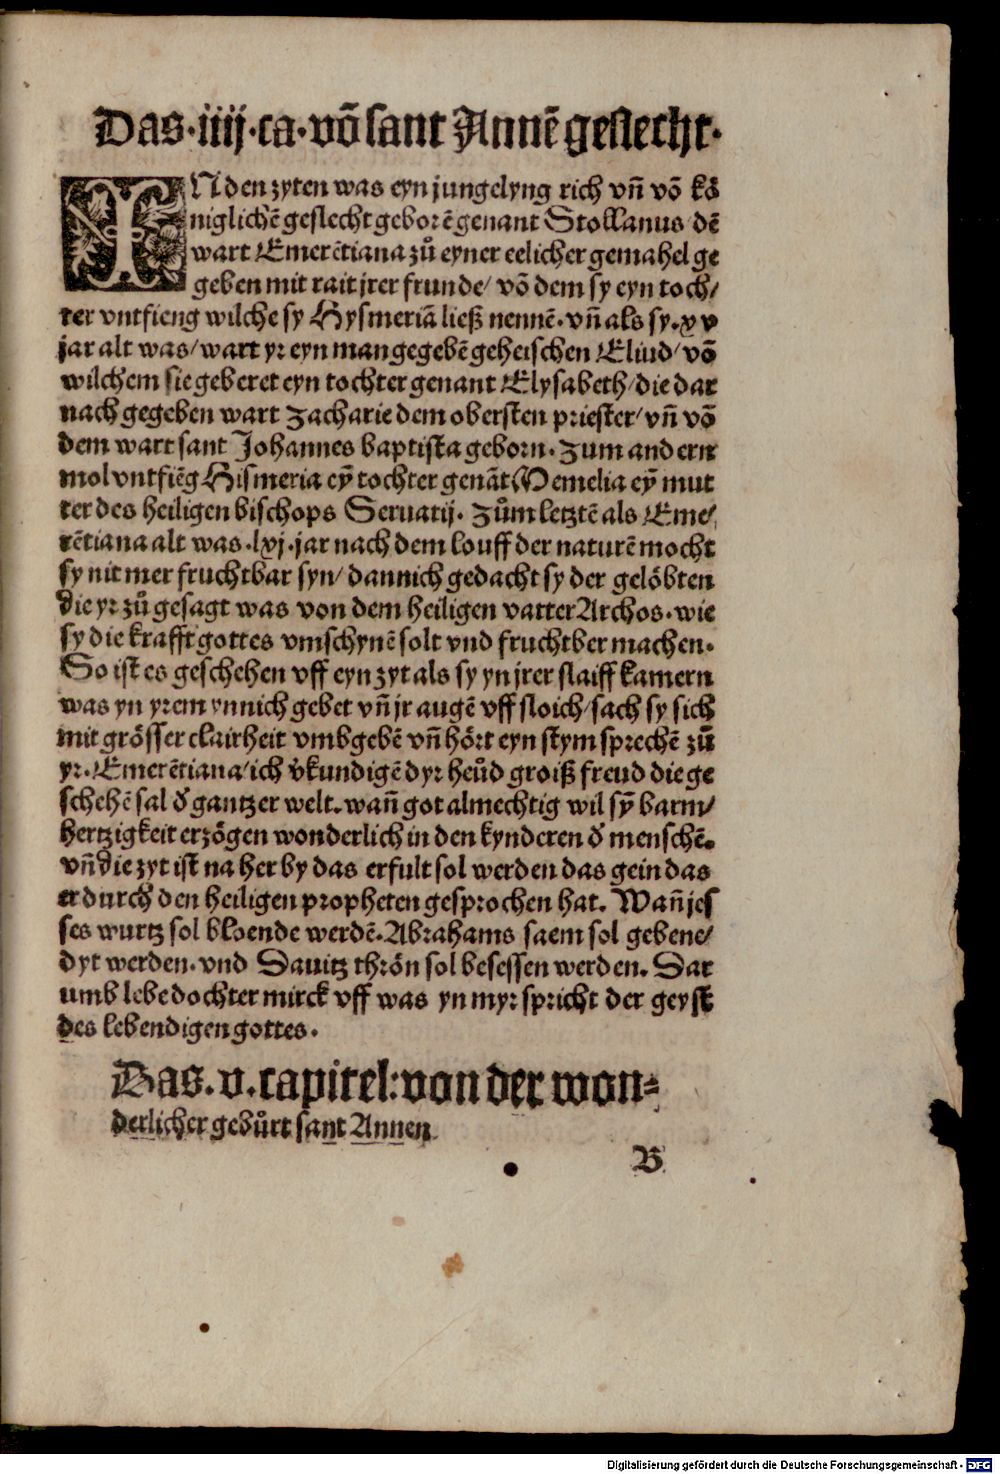 Das·iiij·ca·vō sant Annē geslecht·
IN den zyten was eyn jungelyng rich vn̄ vō kö
niglichē geslecht geborē genant Stollanus/ dē
wart Emerētiana zů eyner eelicher gemahel ge
geben mit rait jrer frunde/ vō dem sy eyn toch/
ter vntfieng wilche sy Hysmeriā ließ nennē· vn̄ als sy·xv
jar alt was/ wart yr eyn man gegebē geheischen Eliud/ vō
wilchem sie geberet eyn tochter genant Elysabeth/ die dar
nach gegeben wart Zacharie dem obersten priester/ vn̄ vō
dem wart sant Johannes baptista geborn· Zum andern
mol vntfiēg Hismeria eȳ tochter genāt Memelia eȳ mut
ter des heiligen bischops Seruatij· Zům letztē als Eme/
rētiana alt was·lxj·jar nach dem louff der naturē mocht
sy nit mer fruchtbar syn/ dannich gedacht sy der gelöbten
die yr zů gesagt was von dem heiligen vatter Archos· wie
sy die krafft gottes vmschynē solt vnd fruchtber machen·
So ist es geschehen vff eyn zyt als sy yn jrer slaiff kamern
was yn yrem ynnich gebet vn̄ jr augē vff sloich/ sach sy sich
mit grösser clairheit vmbgebē vn̄ hört eyn stym sprechē zů
yr· Emerētiana/ ich v̊kundigē dyr heůd groiß freud die ge
schehē sal d̊ gantzer welt· wan̄ got almechtig wil sȳ barm/
hertzigkeit erzögen wonderlich in den kynderen d̊ menschē·
vn̄ die zyt ist na her by das erfult sol werden das gein das
er durch den heiligen propheten gesprochen hat· Wan̄ jes
ses wurtz sol bloende werdē· Abrahams saem sol gebene/
dyt werden· vnd Dauitz thrön sol besessen werden· Dar
umb lebe dochter mirck vff was yn myr spricht der geyst
des lebendigen gottes·
Das·v·capitel: von der won=
derlicher gebůrt sant Annen
B
Digitalisierung gefördert durch die Deutsche Forschungsgemeinschaft - DFG